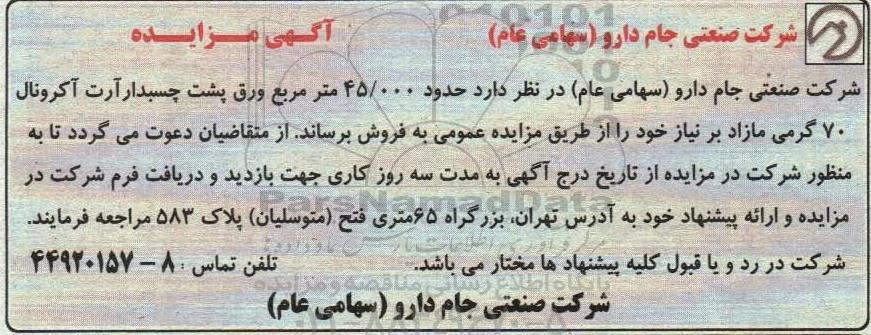 شرکت صنعتی جام دارو (سهامی عام) آگهی مزایده
شرکت صنعتی جام دارو (سهامی عام) در نظر دارد حدود ۴۵/۰۰۰ متر مربع ورق پشت چسبدارآرت آکرونال
۷۰ گرمی مازاد بر نیاز خود را از طریق مزایده عمومی به فروش برساند. از متقاضیان دعوت می گردد تا به
منظور شرکت در مزایده از تاریخ درج آگهی به مدت سه روز کاری جهت بازدید و دریافت فرم شرکت در
ParsNamadData
مزایده و ارائه پیشنهاد خود به آدرس تهران، بزرگراه ۶۵متری فتح (متوسلیان) پلاک ۵۸۳ مراجعه فرمایند.
شرکت در رد و یا قبول کلیه پیشنهاد ها مختار می باشد. تلفن تماس : ۸ – ۴۴۹۲۰۱۵۷
پایگاه اطلاع رسانی مناقصه و مزایده
شرکت صنعتی جام دارو (سهامی عام)